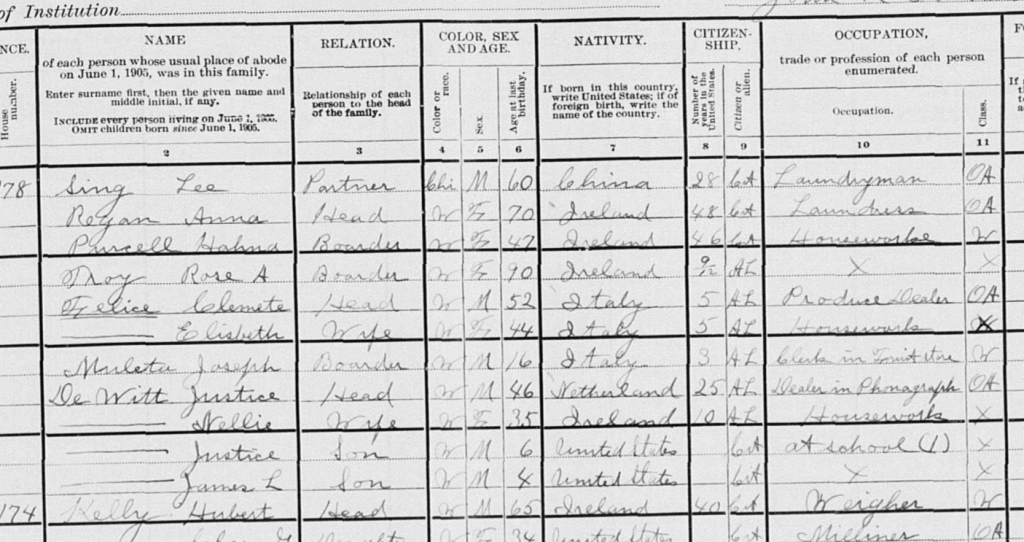 of Institution
NCE. NAME RELATION. COLOR, SEX AND AGE. NATIVITY. CITIZEN-SHIP. OCCUPATION,
House number.
of each person whose usual place of abode on June 1, 1905, was in this family.
Enter surname first, then the given name and middle initial, if any.
INCLUDE every person living on June 1, 1905.
OMIT children born since June 1, 1905.
Relationship of each person to the head of the family.
Color or race.
Sex.
Age at last birthday.
If born in this country, write United States; if of foreign birth, write the name of the country.
Number of years in the United States.
Citizen or alien.
trade or profession of each person enumerated.
Occupation.
Class.
2 3 4 5 6 7 8 9 10 11
178 Sing Lee Partner Chi M 60 China 28 Cit Laundryman OA
Regan Anna Head W F 70 Ireland 48 Cit Laundress OA
Purcell Hahna Boarder W F 47 Ireland 46 Cit Housework W
Troy Rose A Boarder W F 90 Ireland 9/12 AL X X
Felice Clemete Head W M 52 Italy 5 AL Produce Dealer OA
—— Elisbeth Wife W F 44 Italy 5 AL Housework X
Muleta Joseph Boarder W M 16 Italy 3 AL Clerk in Fruit store W
De Witt Justice Head W M 46 Netherland 25 AL Dealer in Phonograph OA
—— Nellie Wife W F 35 Ireland 10 AL Housework X
—— Justice Son W M 6 United States Cit at school (1) X
—— James L Son W M 4 United States Cit X X
174 Kelly Hubert Head W M 65 Ireland 40 Cit Weigher W
W F 34 United States Cit Milliner OA